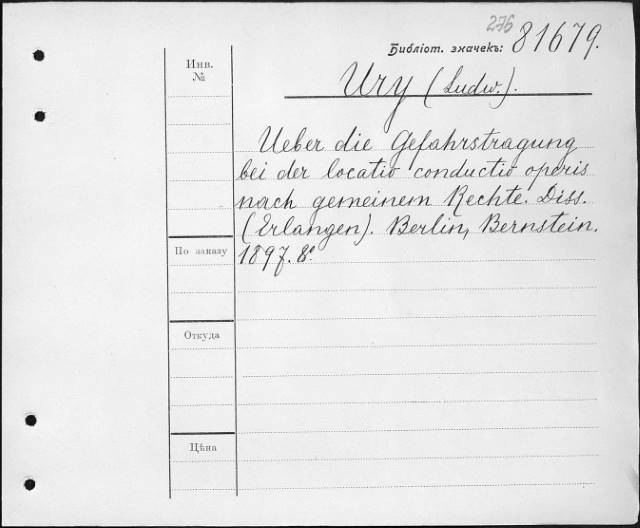 276
Библіот. значекъ: 81679.
Инв.
№
Ury (Ludw.).
Ueber die Gefahrstragung
bei der locatio conductio operis
nach gemeinem Rechte. Diss.
(Erlangen). Berlin, Bernstein.
По заказу
1897. 8º.
Откуда
Цѣна